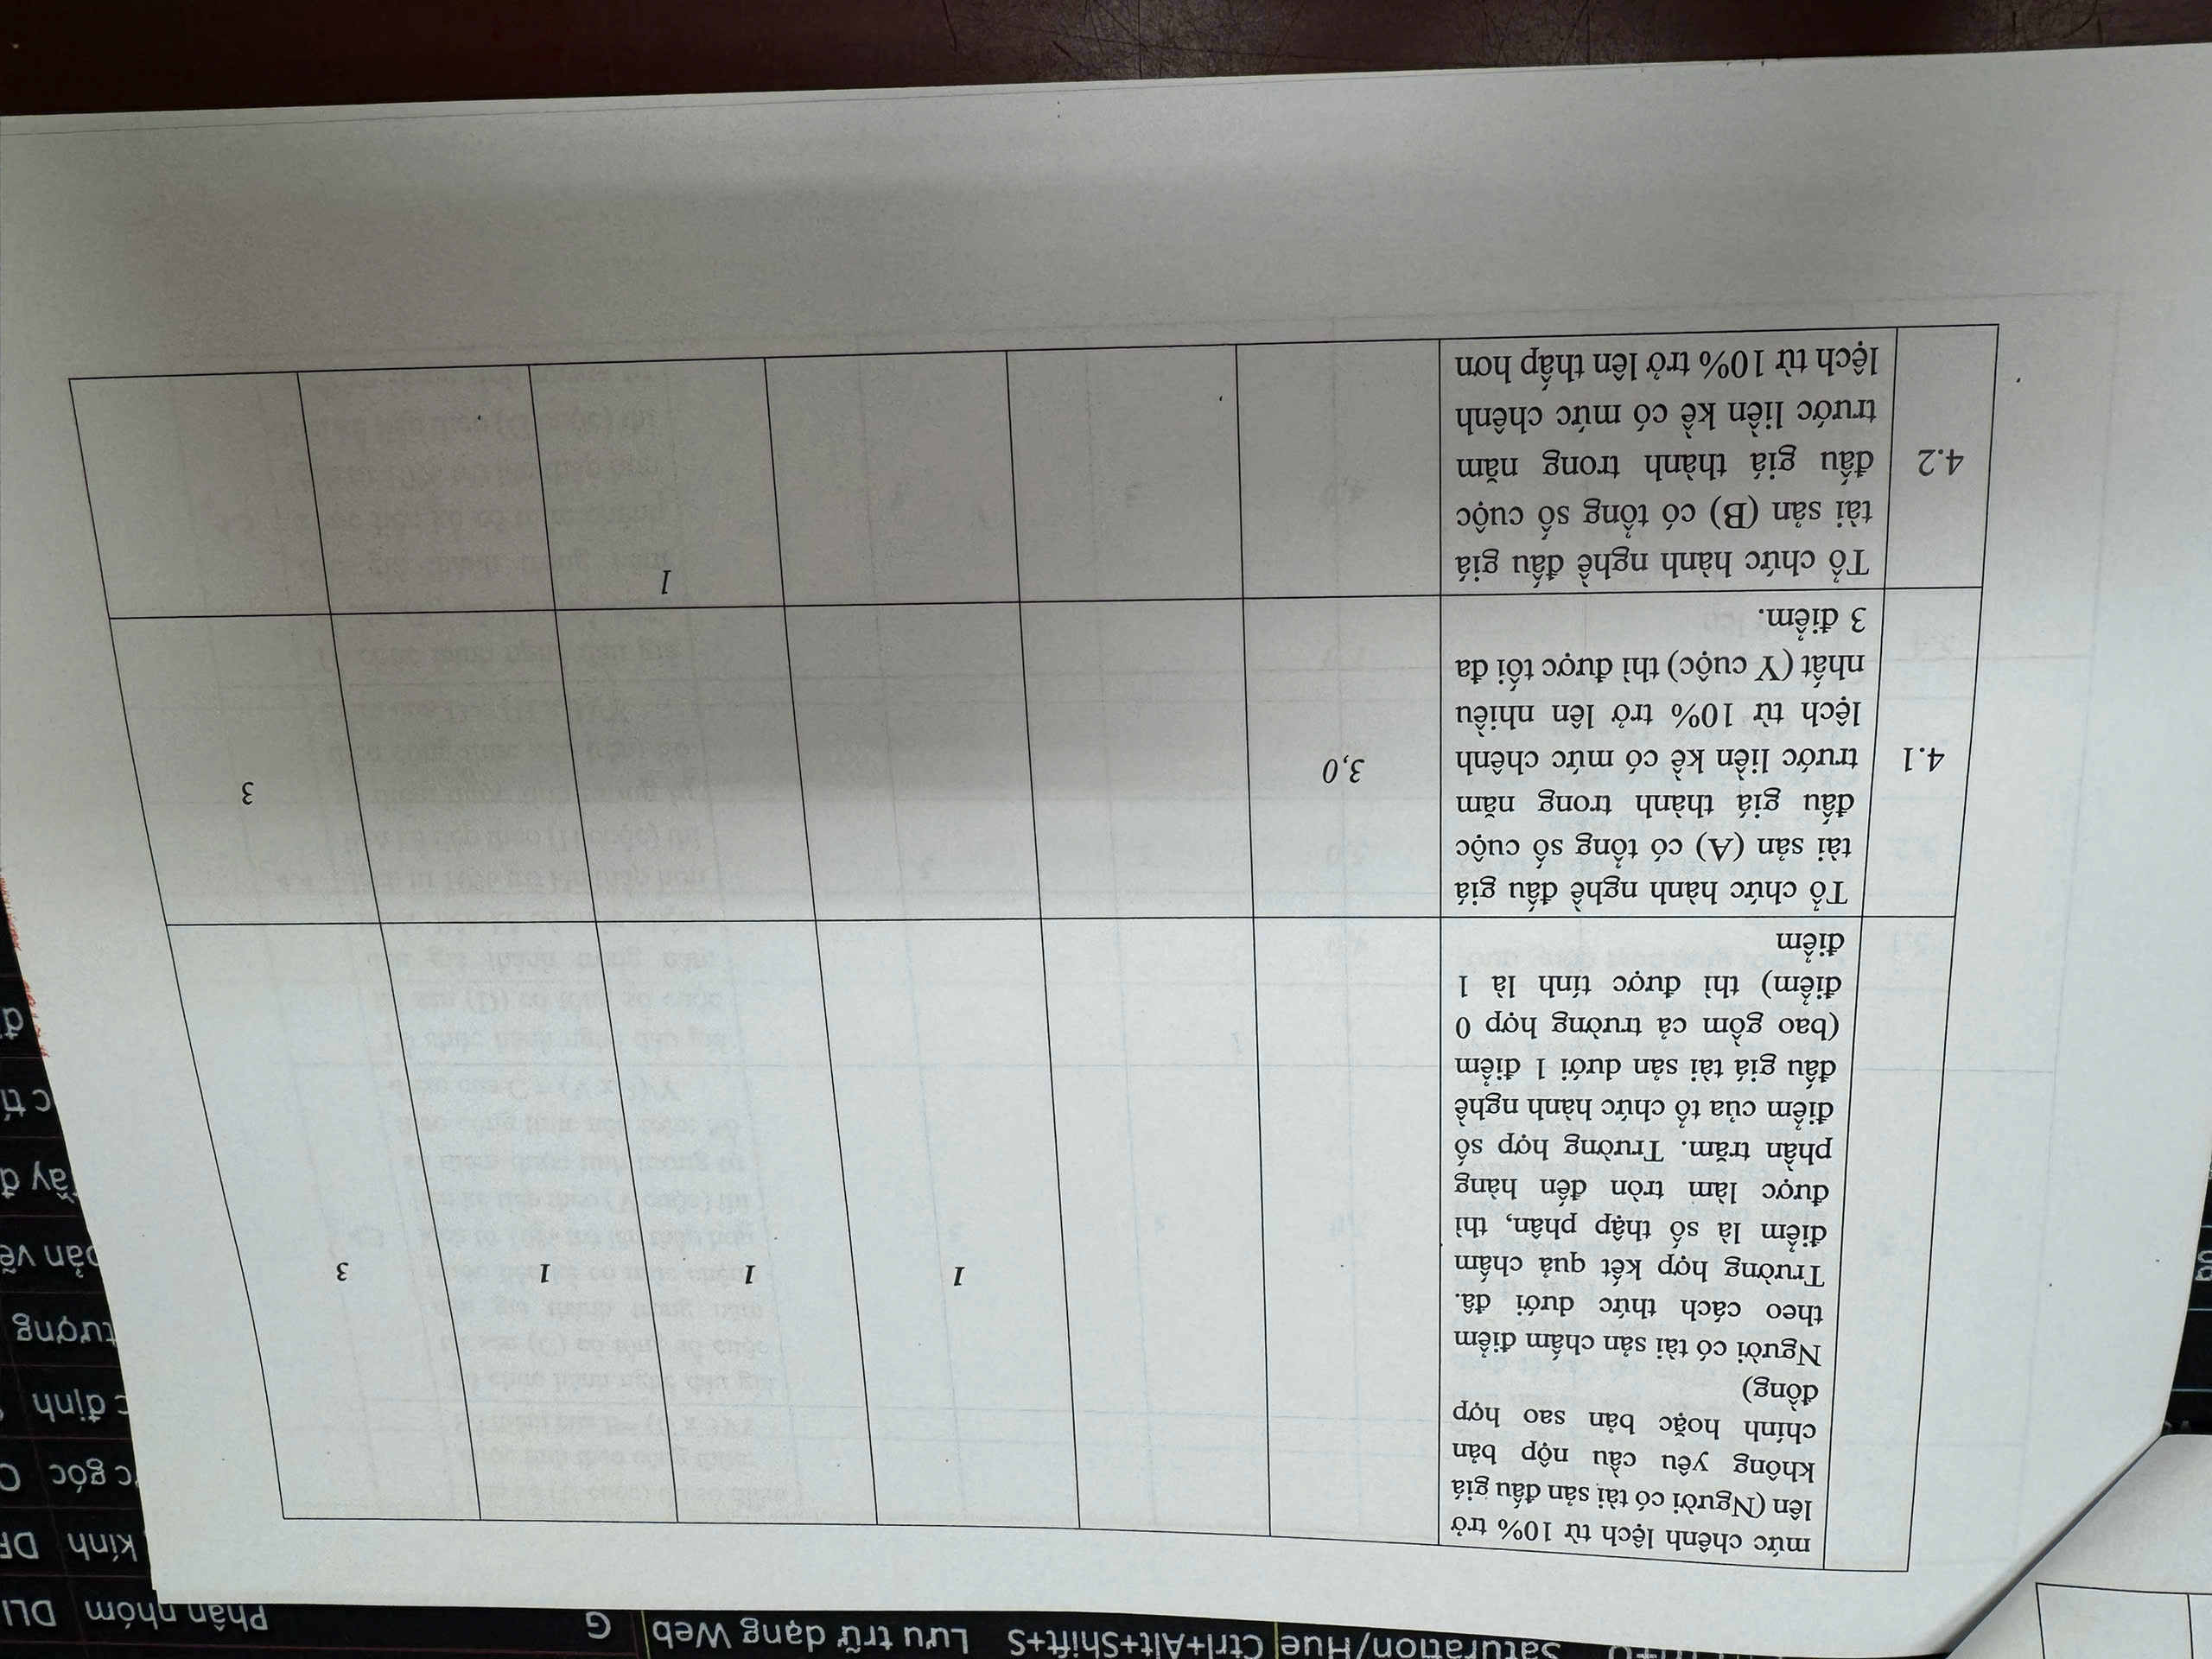 mức chênh lệch từ 10% trở
lên (Người có tài sản đấu giá
không yêu cầu nộp bản
chính hoặc bản sao hợp
đồng)
Người có tài sản chấm điểm
theo cách thức dưới đâ.
Trường hợp kết quả chấm
điểm là số thập phân, thì
được làm tròn đến hàng
phần trăm. Trường hợp số
điểm của tổ chức hành nghề
đấu giá tài sản dưới 1 điểm
(bao gồm cả trường hợp 0
điểm) thì được tính là 1
điểm
1 1 1 3
4.1
Tổ chức hành nghề đấu giá
tài sản (A) có tổng số cuộc
đấu giá thành trong năm
trước liền kề có mức chênh
lệch từ 10% trở lên nhiều
nhất (Y cuộc) thì được tối đa
3 điểm.
3,0 3
4.2
Tổ chức hành nghề đấu giá
tài sản (B) có tổng số cuộc
đấu giá thành trong năm
trước liền kề có mức chênh
lệch từ 10% trở lên thấp hơn
1
Saturation/Hue Ctrl+Alt+Shift+S Lưu trữ dạng Web G
Phân nhóm
kính
góc
định
tượng